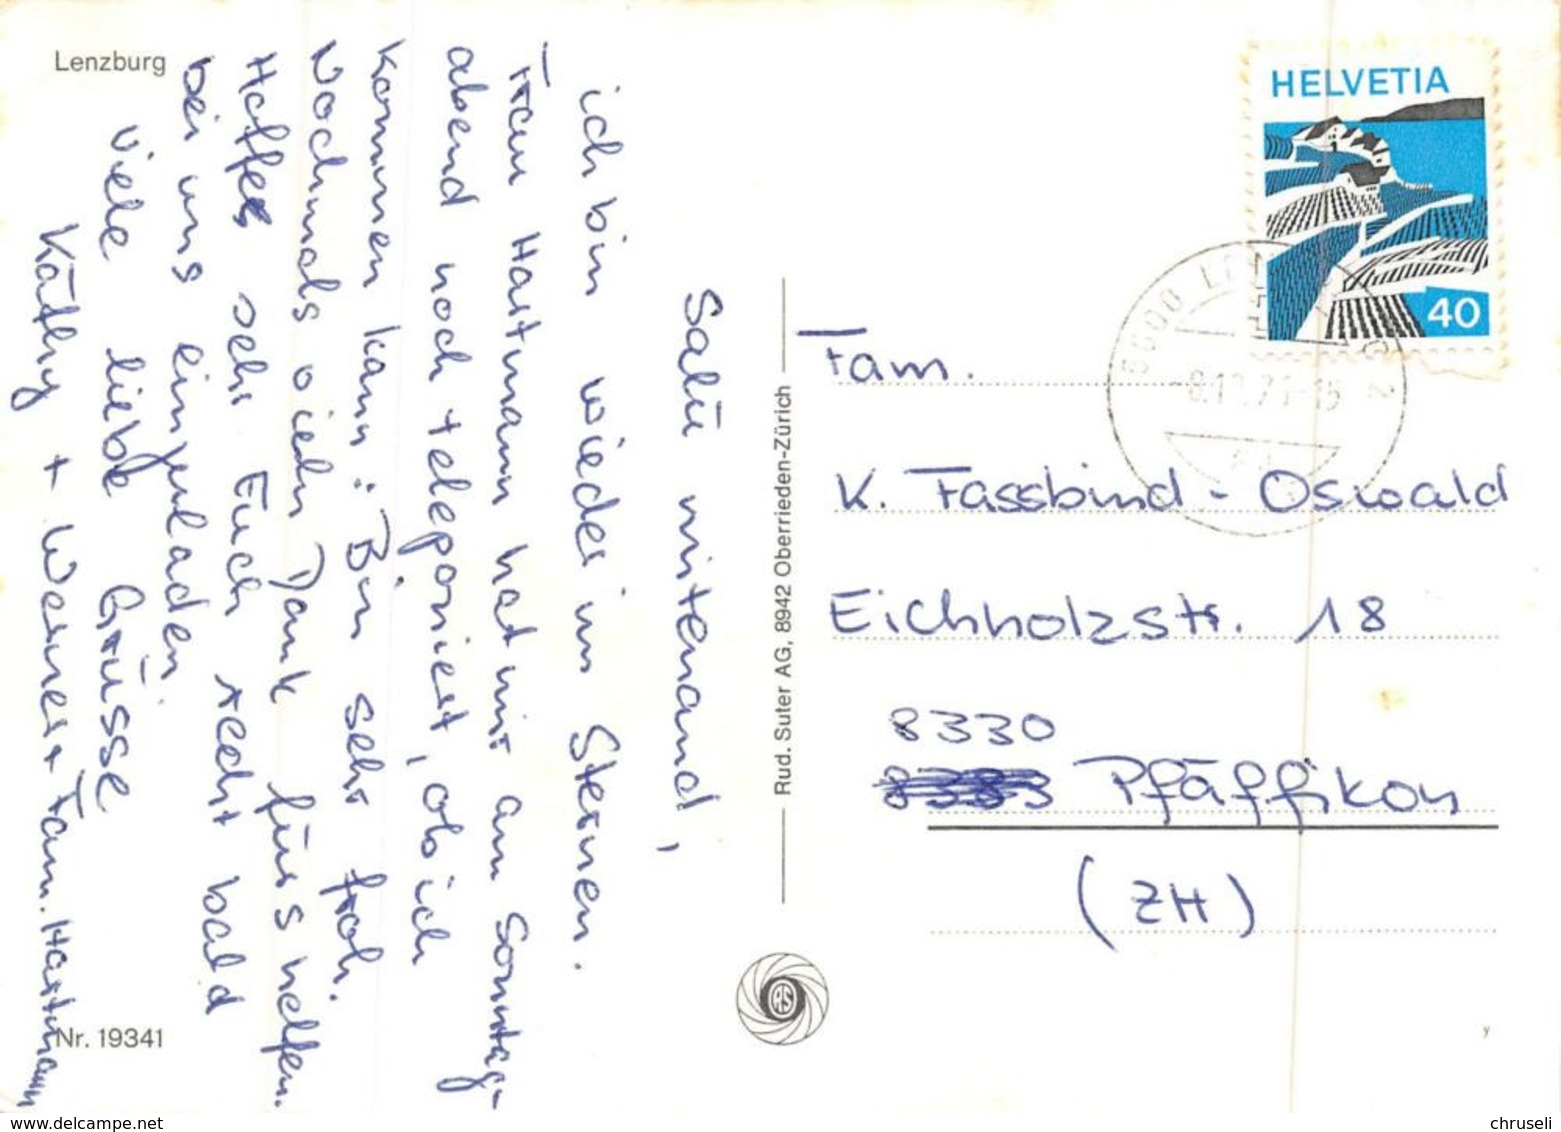 Lenzburg
Salü mitenand,
ich bin wieder im Sternen.
Frau Hartmann hat mir am Sonntag-
abend noch teleponiert, ob ich
kommen kann: Bin sehr froh.
Nochmals vieln Dank fürs helfen.
Hoffe sehr Euch recht bald
bei uns einzuladen.
Viele liebe Grüsse
Käthy + Werner + Fam. Hartmann
Nr. 19341
Rud. Suter AG, 8942 Oberrieden-Zürich
HELVETIA
40
Fam.
K. Fassbind-Oswald
Eichholzstr. 18
8330
Pfäffikon
(ZH)
y
www.delcampe.net
chruseli